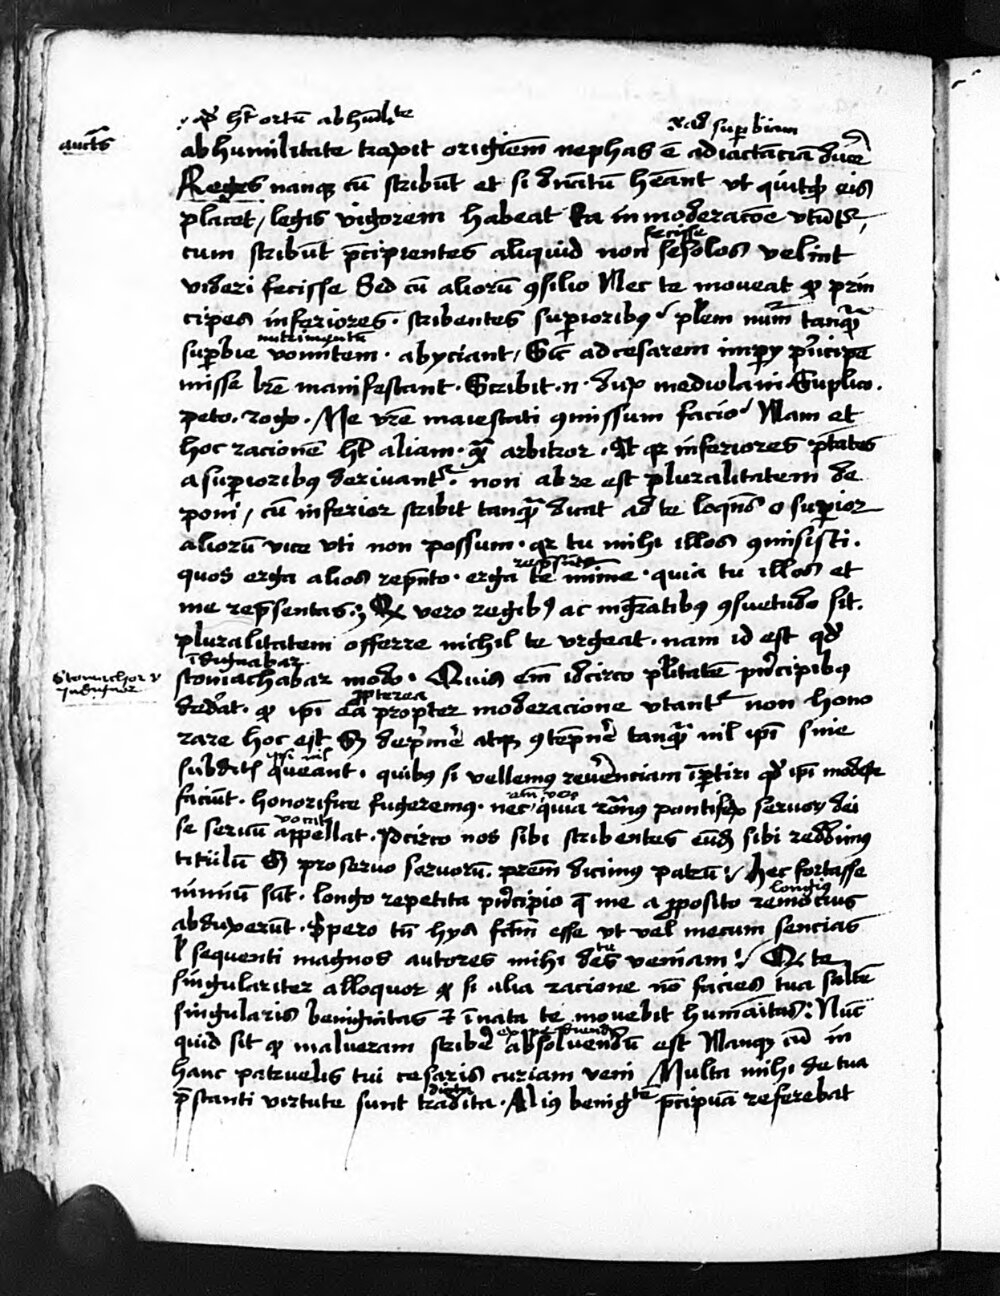 qd hт ortū ab huilte
.i. ad superbiam
auctᵒs
ab humilitate traxit originem nephas ē ad iactāciā ducē
Reges nanq cū scribūt et si dnatū hēant ut quitqd eis
placet / legis vigorem habeat Ita in moderacōe utūtr,
fecisse
cum scribūt p̄cipientes aliquid non se solos velint
videri fecisse Sed cū aliorū 9silio Nec te moveat qd prin
cipes inferiores . scribentes superioribꝰ plem nūm tanq̄
nutrimentū
superbie vomitem . abyciant / Sic ad cesarem impery p̄ncipē
misse lr̄e manifestant . Scribit .n. dux mediolani Suplico .
peto . rogo . Me vr̄e maiestati 9missum facio Nam et
hoc racionē ht aliam . q̄ arbitror . Ut qr inferiores p̄tates
a superioribꝰ derivantr . non ab re est pluralitatem de
poni / cū inferior scribit tanq̄ dicat ad te loquēs o superior
aliorū vice uti non possum . qr tu mihi illos 9misisti .
rep̄sūto
quos erga alios rep̄nto . erga te mīme . quia tu illos et
me rep̄sentas . Qd vero regibꝰ ac mgratibꝰ 9suetudo sit .
pluralitatem offerre nichil te urgeat . nam id est qd
īdignabar
Stomachor v
indignor
stomachabar modo . Quis em̄ idcirco plitatē pncipibꝰ
ppterea
dedat . qd ipi ea propter moderacione utantr non hono
rare hoc est Sz dep̄mē atqz 9tepnē tanq̄ nil ipi sine
ipsi nil
subditis queant . quibus si vellemus reverenciam īptiri qd ipi modeste
etiā vero
faciūt . honorifice fugeremus . nec quia romꝰ pontifex servorz dei
vocat
se servū appellat . Idcirco nos sibi scribentes eūdz sibi reddimꝰ
titulū Sz pro servo servorū . prem̄ dicimꝰ patrū Hec fortasse
longiꝰ
nimiū sūt . longo repetita pncipio q̄ me a pposito remocius
abduxerunt . Spero tn̄ hys fctm̄ esse ut vel mecum sencias
tu
l sequenti magnos autores mihi des veniam Qd te
singulariter alloquor qd si alia racione nō facies tua saltē
singularis benignitas et innata te movebit humanitas : Nūc
exprimendū
quid sit qd malueram scribē absolvendū est Namqz cū in
hanc patruelis tui cesaris curiam veni Multa mihi de tua
dicta
p̄stanti virtute sunt tradita . Aliꝰ benigtē p̄cipuā referebat